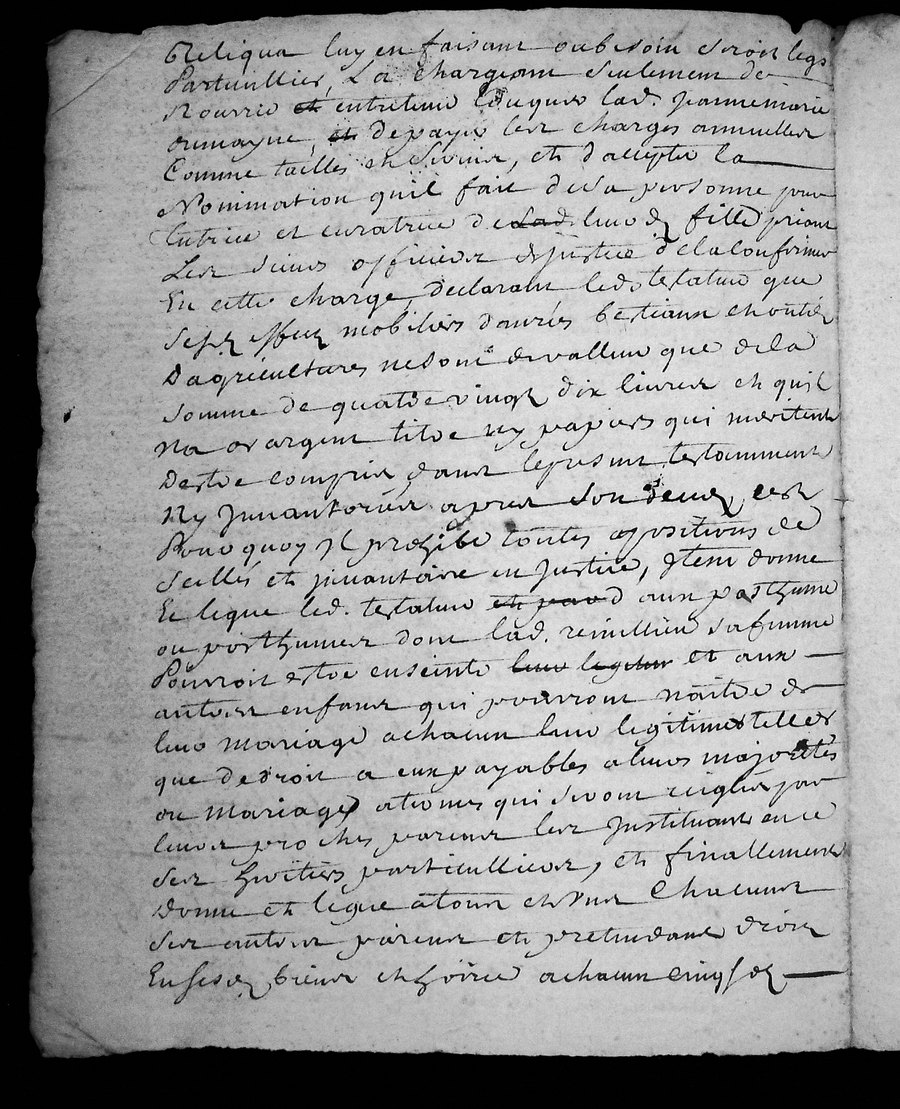 Reliqua luy en faisant oubesoin seroit legs
Particullier, La chargeant seulement de
Nourrir et entretenir lad. Jeannemarie
et depayer les charges annuelles
Comme tailles et , et daccepter la
Nomination quil fait desa personne pour
tutrice et curatrice de Lad. leurd. fille priant
Les sieurs officiers dejustice delaconfirmer
En cette charge, declarant led. testateur que
sesd. effets mobiliers danrées bestiaux et outils
Dagricultures nesont devalleur que dela
somme de quatre vingt dix livres et quil
Na or argent titre ny papiers qui meritent
Destre compris dans lepresent testamment
Ny Jnvantoriés apres son deces, cest
Pourquoy Jl prohibe toutes opositions de
scellés et jnvantaire en justice, Jtem donne
Et legue led. testateur et par d aux posthume
ou posthumes dont lad. safemme
Pourroit estre enceinte leur legitime et aux
autres enfans qui pourront naitre de
leur mariage achacun leur legitimes telles
que dedroit a eux payables aleurs majorités
ou mariage atermes qui seront reiglés par
leurs proches parens les Jnstituant en ce
ses heritiers particulliers, et finallement
Donne et legue atous et chacuns
ses autres parens et pretendans droit
En sesd. biens et hoirie achacun cinq sols